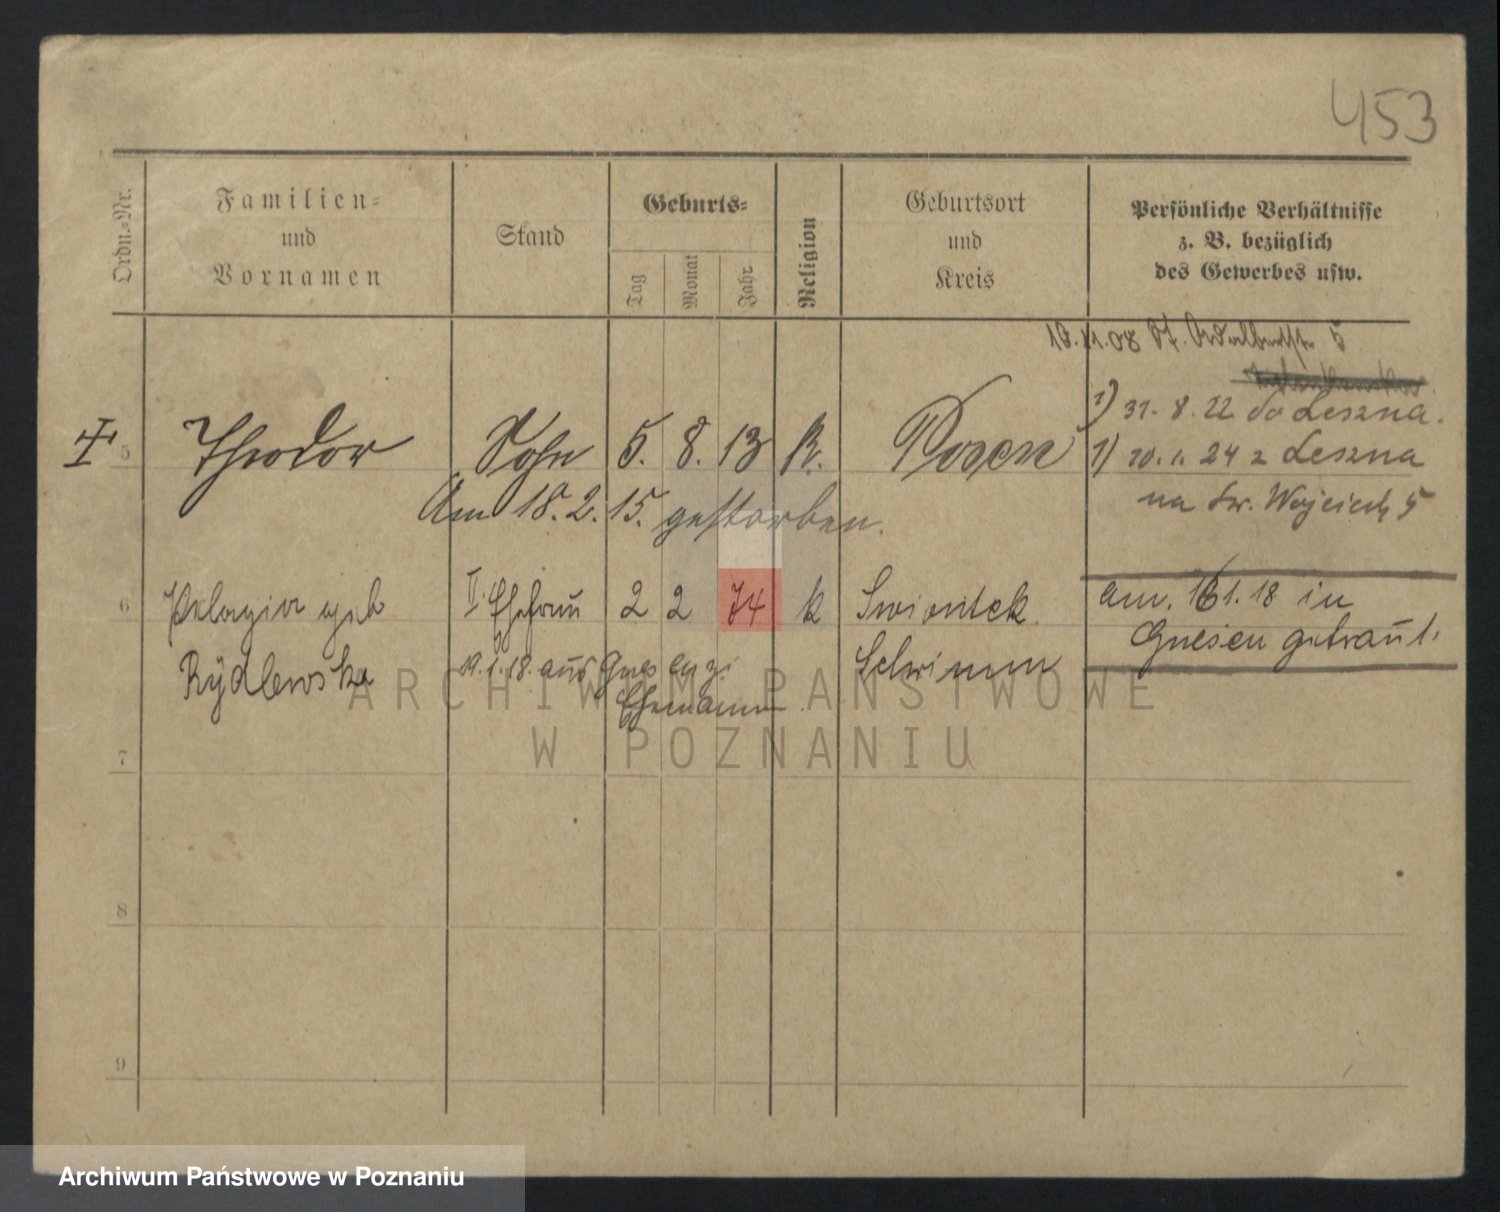 453
Ordn.-Nr.
Familien-
und
Vornamen
Stand
Geburts-
Tag
Monat
Jahr
Religion
Geburtsort
und
Kreis
Persönliche Verhältnisse
z. B. bezüglich
des Gewerbes usw.
10.11.08 St. Adalbertstr. 5
1) 31. 8. 22 do Leszna.
5 Theodor Sohn 5. 8. 13 k. Posen
1) 20. 1. 24 z Leszna
na Św. Wojciech 5
Am 18. 2. 15. gestorben.
6 Pelagia geb II. Ehefrau 2 2 74 k Swiontek
am. 16 1. 18 in
Gnesen getraut.
Rÿdlewska 19.1.18. aus Gnesen zu Schrimm
Ehemann
7
8
9
ARCHIWUM PAŃSTWOWE
W POZNANIU
Archiwum Państwowe w Poznaniu